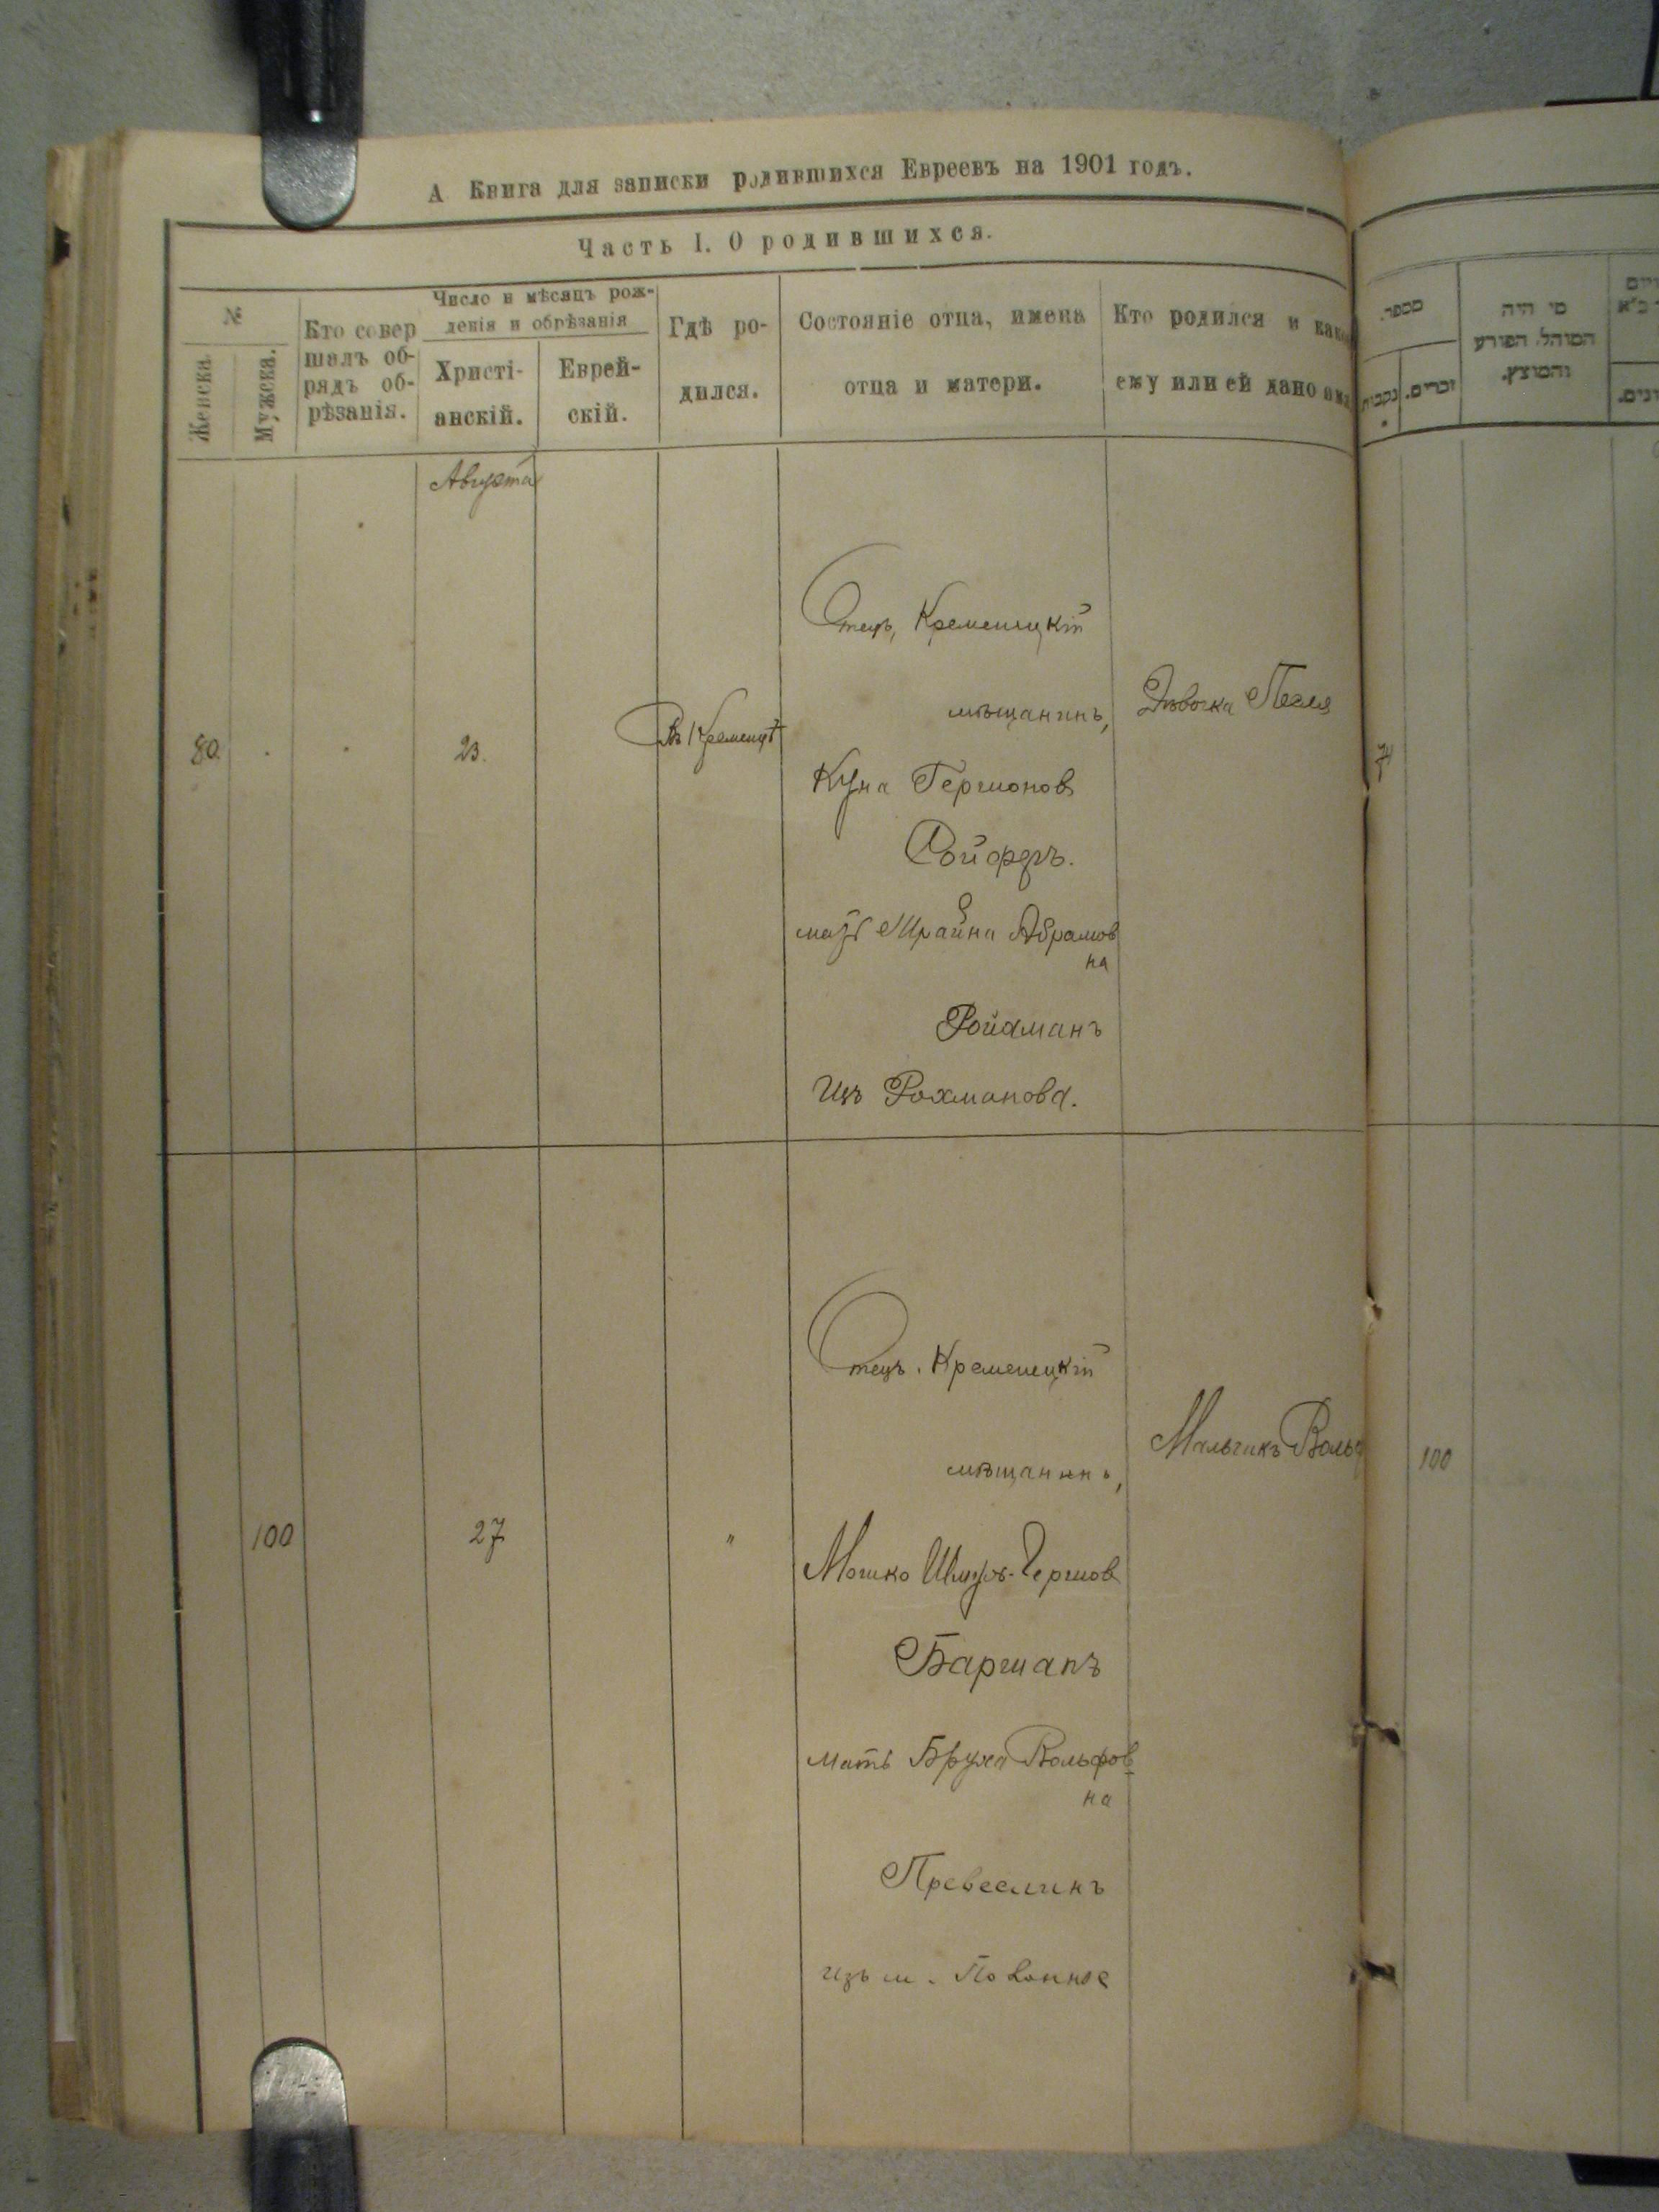 А Книга для записки родившихся Евреевъ на 1901 годъ.
Часть I. О родившихся.
№
Женска
Мужска.
Кто совер
шалъ об-
рядъ об-
рѣзанія.
Число и мѣсяцъ рож-
денія и обрѣзанія
Христі-
анскій.
Еврей-
скій.
Гдѣ ро-
дился.
Состояніе отца, имена
отца и матери.
Кто родился и
ему или ей дано
מספר.
נקבות
זכרים.
מי היה
המוהל. הפורע
והמוצץ.
Августа
80
23.
Въ Кременцѣ
Отецъ, Кременецкій
мѣщанинъ,
Куна Гершонов
Ройферъ.
мать Фрайна Абрамов
на
Ройхманъ
Изъ Рохманова.
Дѣвочка Песля
100
27
"
Отецъ. Кременецкій
мѣщанинъ,
Мошко Шмуль-Гершов
Баршапъ
мать Бруха Вольфов
на
Превеслинъ
изъ м.
Мальчикъ Вольф
100